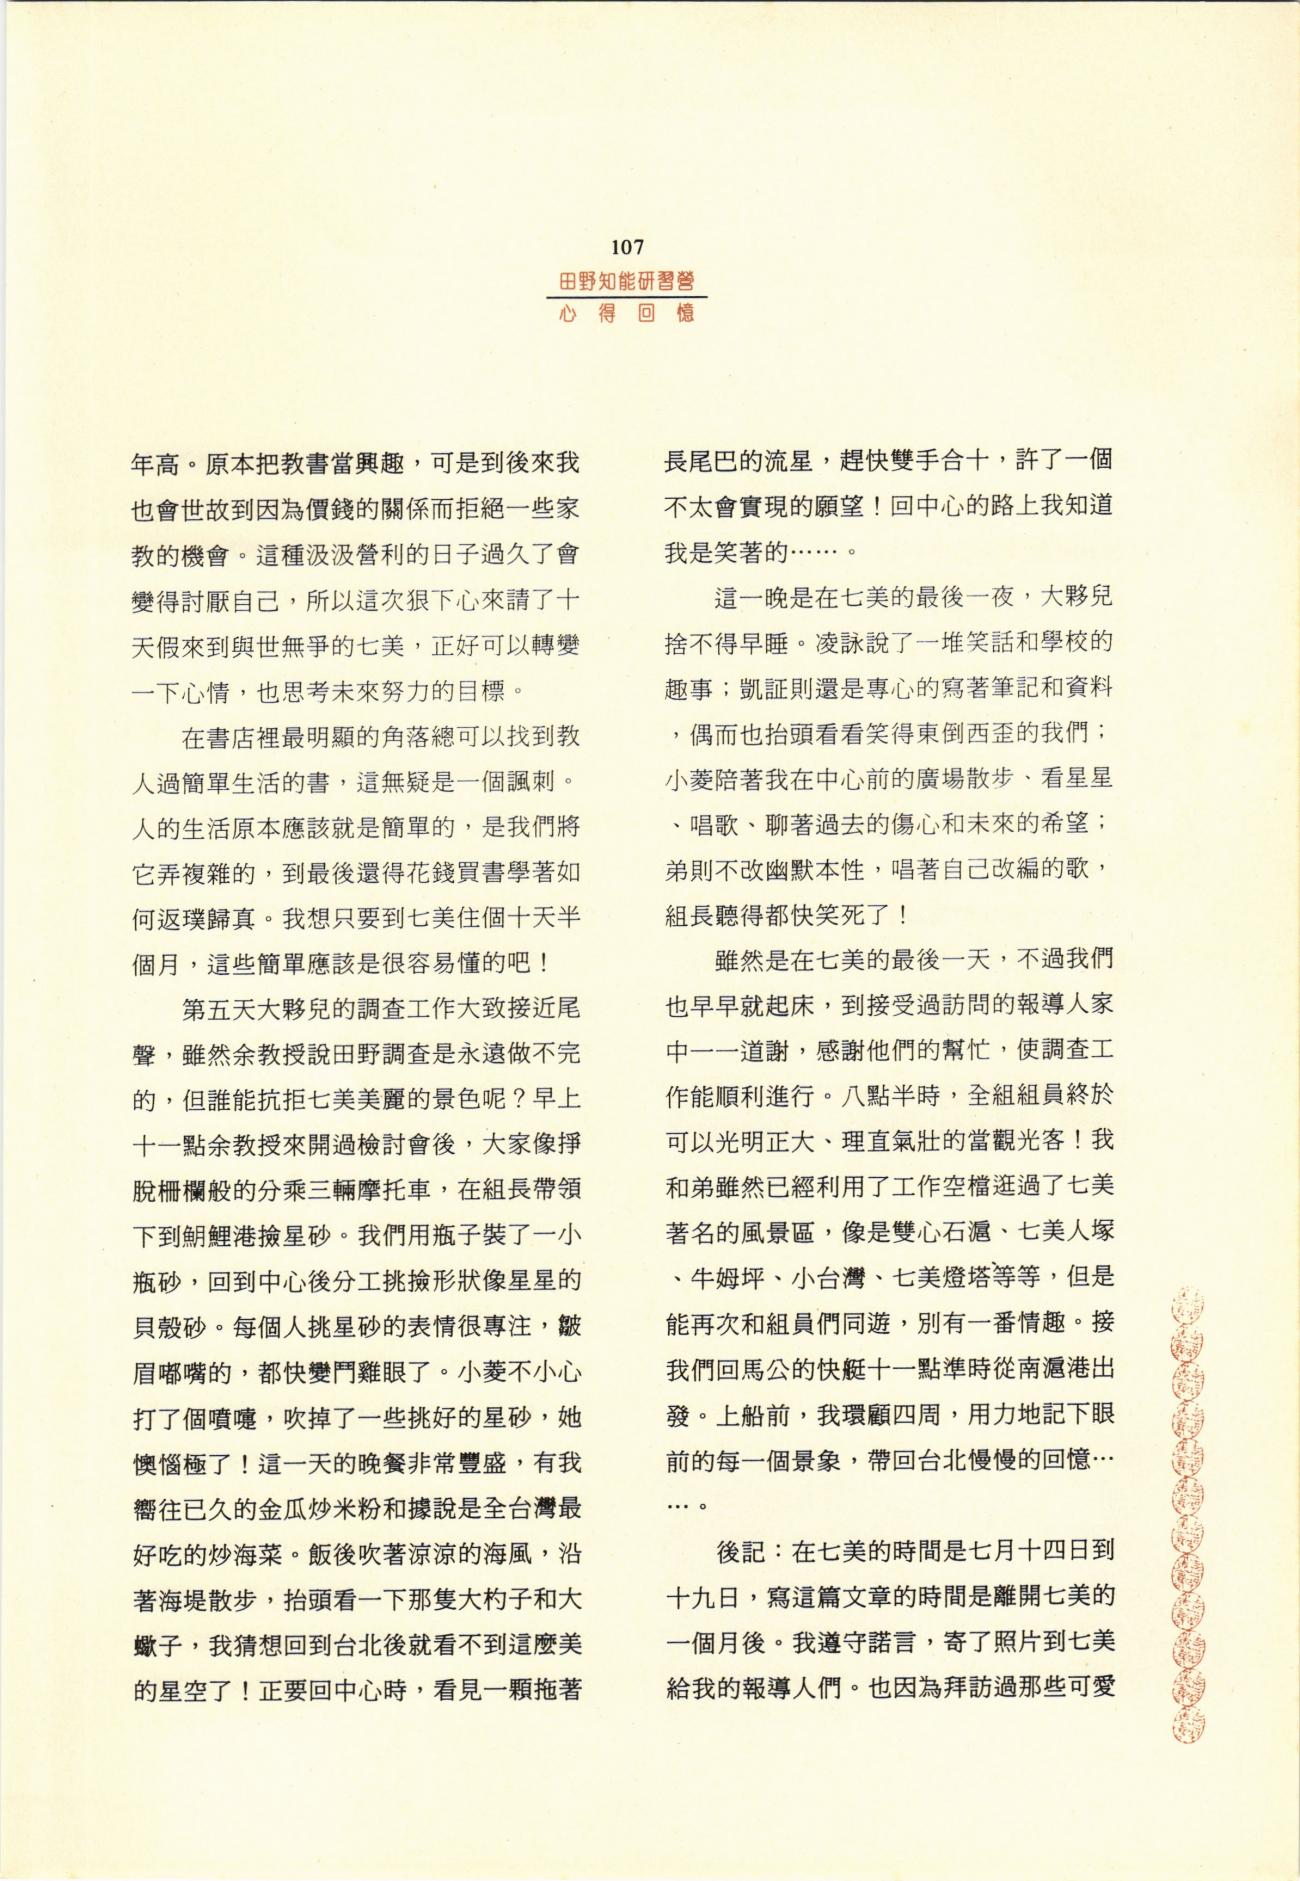 107
田野知能研習營
心得回憶
年高。原本把教書當興趣，可是到後來我
也會世故到因為價錢的關係而拒絕一些家
教的機會。這種汲汲營利的日子過久了會
變得討厭自己，所以這次狠下心來請了十
天假來到與世無爭的七美，正好可以轉變
一下心情，也思考未來努力的目標。
在書店裡最明顯的角落總可以找到教
人過簡單生活的書，這無疑是一個諷刺。
人的生活原本應該就是簡單的，是我們將
它弄複雜的，到最後還得花錢買書學著如
何返璞歸真。我想只要到七美住個十天半
個月，這些簡單應該是很容易懂的吧！
第五天大夥兒的調查工作大致接近尾
聲，雖然余教授說田野調查是永遠做不完
的，但誰能抗拒七美美麗的景色呢？早上
十一點余教授來開過檢討會後，大家像掙
脫柵欄般的分乘三輛摩托車，在組長帶領
下到魡鯉港撿星砂。我們用瓶子裝了一小
瓶砂，回到中心後分工挑撿形狀像星星的
貝殼砂。每個人挑星砂的表情很專注，皺
眉嘟嘴的，都快變鬥雞眼了。小菱不小心
打了個噴嚏，吹掉了一些挑好的星砂，她
懊惱極了！這一天的晚餐非常豐盛，有我
嚮往已久的金瓜炒米粉和據說是全台灣最
好吃的炒海菜。飯後吹著涼涼的海風，沿
著海堤散步，抬頭看一下那隻大杓子和大
蠍子，我猜想回到台北後就看不到這麼美
的星空了！正要回中心時，看見一顆拖著
長尾巴的流星，趕快雙手合十，許了一個
不太會實現的願望！回中心的路上我知道
我是笑著的……。
這一晚是在七美的最後一夜，大夥兒
捨不得早睡。凌詠說了一堆笑話和學校的
趣事；凱証則還是專心的寫著筆記和資料
，偶而也抬頭看看笑得東倒西歪的我們；
小菱陪著我在中心前的廣場散步、看星星
、唱歌、聊著過去的傷心和未來的希望；
弟則不改幽默本性，唱著自己改編的歌，
組長聽得都快笑死了！
雖然是在七美的最後一天，不過我們
也早早就起床，到接受過訪問的報導人家
中一一道謝，感謝他們的幫忙，使調查工
作能順利進行。八點半時，全組組員終於
可以光明正大、理直氣壯的當觀光客！我
和弟雖然已經利用了工作空檔逛過了七美
著名的風景區，像是雙心石滬、七美人塚
、牛姆坪、小台灣、七美燈塔等等，但是
能再次和組員們同遊，別有一番情趣。接
我們回馬公的快艇十一點準時從南滬港出
發。上船前，我環顧四周，用力地記下眼
前的每一個景象，帶回台北慢慢的回憶…
…。
後記：在七美的時間是七月十四日到
十九日，寫這篇文章的時間是離開七美的
一個月後。我遵守諾言，寄了照片到七美
給我的報導人們。也因為拜訪過那些可愛